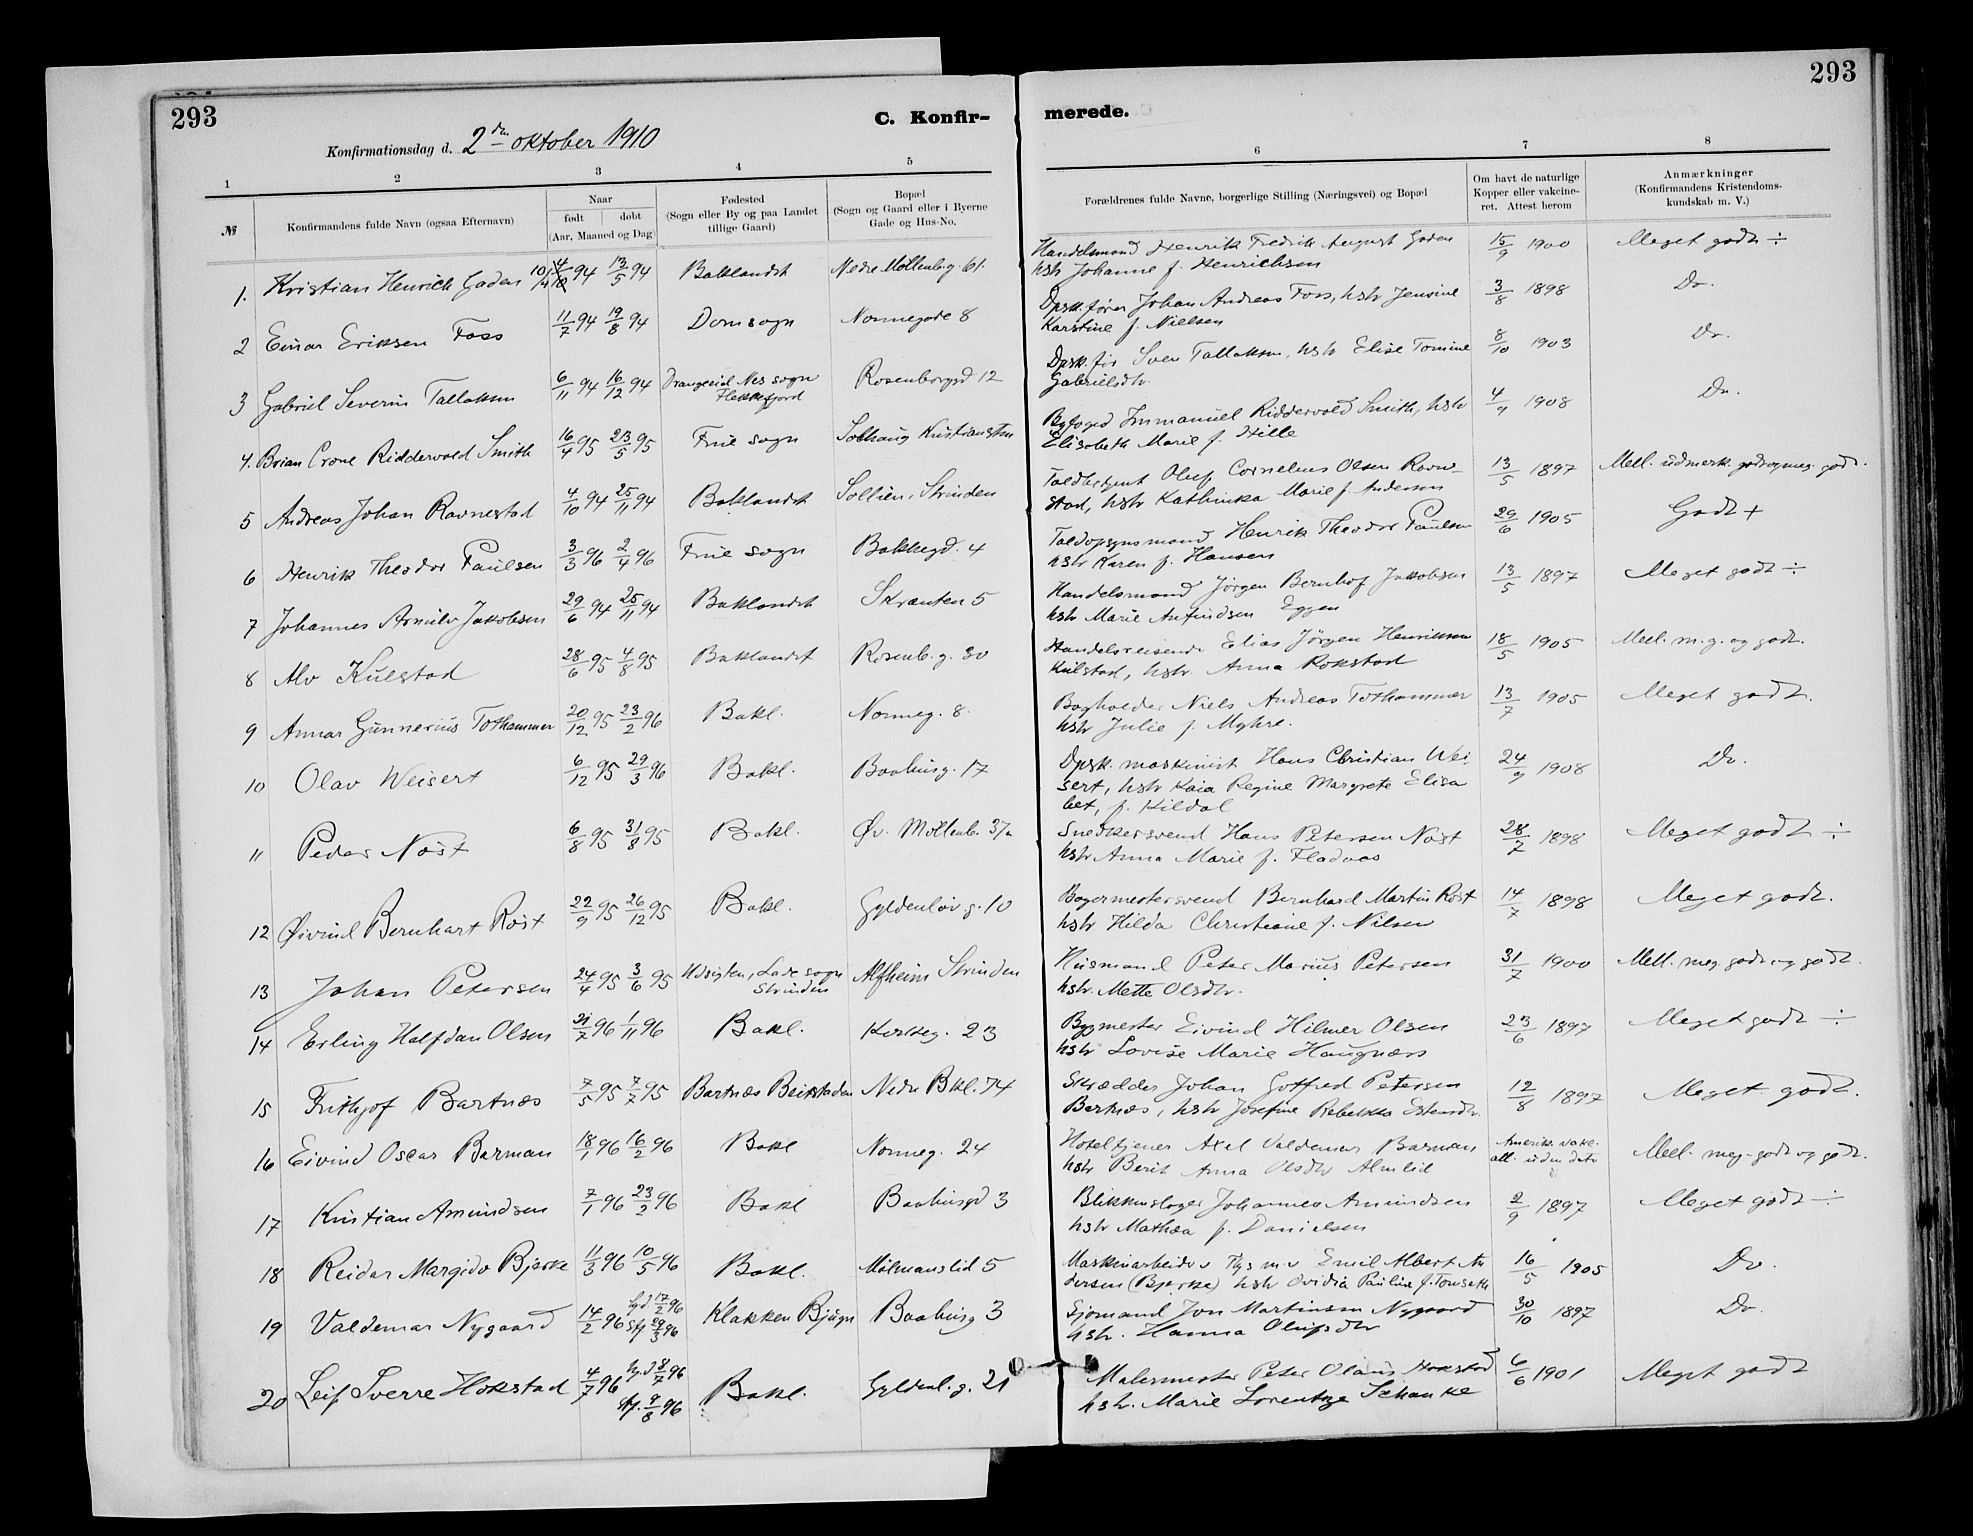 293
293
C. Konfir-
merede.
Konfirmationsdag d. 2den oktober 1910
1 2 3 4 5 6 7 8
№
Konfirmandens fulde Navn (ogsaa Efternavn)
Naar
født døbt
(Aar, Maaned og Dag)
Fødested
(Sogn eller By og paa Landet
tillige Gaard)
Bopæl
(Sogn og Gaard eller i Byerne
Gade og Hus-No.
Forældrenes fulde Navne, borgerlige Stilling (Næringsvei) og Bopæl
Om havt de naturlige
Kopper eller vakcine-
ret. Attest herom
Anmærkninger
(Konfirmandens Kristendoms-
kundskab m. V.)
1. Kristian Henrich Gaden 10/4 94 13/5 94 Baklandet Nedre Møllenb.g. 61. Handelsmand Henrik Fredrik August Gaden 15/9 1900 Meget godt ÷
hstr Johanne f. Henrichsen
2 Einar Eriksen Foss 11/7 94 19/8 94 Domsogn Nonnegade 8 Dpsk.fører Johan Andreas Foss, hstr Jensine 3/8 1898 Do.
Karstine f. Nielsen
3 Gabriel Severin Tallaksen 6/11 94 16/12 94 Drangeeid Nes sogn Rosenborgd 12 Dpsk.før Sven Tallaksen, hstr Elise Tomine 8/10 1903 Do.
Flekkefjord Gabrielsdtr.
4. Brian Crone Ridderwold Smith 16/4 95 23/5 95 Frue sogn Solhaug Kristiansten Byfoged Immanuel Ridderwold Smith, hstr 4/9 1908 Do.
Elisabeth Marie f. Hille
5 Andreas Johan Ravnestad 4/10 94 25/11 94 Baklandet Sollien, Strinden Toldbetjent Oluf Cornelius Olsen Ravne- 13/5 1897 Mell. udmerk. godt og meg. godt.
stad, hstr Kathinka Marie f. Andersen
6 Henrik Theodor Paulsen 3/3 96 2/4 96 Frue sogn Bakkegd. 4 Toldopsynsmand Henrik Theodor Paulsen 29/6 1905 Godt +
hstr Karen f. Hansen
7 Johannes Arnulv Jakobsen 29/6 94 25/11 94 Baklandet Skrænten 5 Handelsmand Jørgen Bernhof Jakobsen 13/5 1897 Meget godt ÷
hstr Marie Anfindsen Eggen
8 Alv Kulstad 28/6 95 4/8 95 Baklandet Rosenb.g. 30 Handelsreisende Elias Jörgen Henriksen 18/5 1905 Mell. m.g. og godt.
Kulstad, hstr. Anna Rokstad
9 Annar Gunnerius Tothammer 20/12 95 23/2 96 Bakl. Nonneg. 8. Bogholder Niels Andreas Tothammer 13/7 1905 Meget godt.
hstr Julie f. Myhre.
10 Olav Weisert 6/12 95 29/3 96 Bakl. Baahusg. 17 Dpsk. maskinist Hans Christian Wei- 24/9 1908 Do.
sert, hstr Kaia Regine Margrete Elisa
bet, f. Kildal
11 Peder Nöst 6/8 95 31/8 95 Bakl. Øv. Møllenb. 37a Snedkersvend Hans Petersen Nöst 28/7 1898 Meget godt ÷
hstr Anna Marie f. Fladaas
12 Øivind Bernhart Röst 22/9 95 26/12 95 Bakl. Gyldenløv g. 10 Bagermestersvend Bernhard Martin Röst 14/7 1898 Meget godt.
hstr Hilda Christiane f. Nilsen
13 Johan Petersen 24/4 95 3/6 95 Udsigten, Lade sogn Alfheim Strinden Husmand Peter Marius Petersen 31/7 1900 Mell. meg. godt og godt.
Strinden hstr. Mette Olsdtr.
14 Erling Halfdan Olsen 31/7 96 1/11 96 Bakl. Kirkeg. 23 Bygmester Eivind Hilmer Olsen 23/6 1897 Meget godt ÷
hstr Lovise Marie Haugnæss
15 Frithjof Bartnæs 7/5 95 7/7 95 Bartnæs Beitstaden Nedre Bkl. 74 Skrædder Johan Gotfred Petersen 12/8 1897 Meget godt.
Bartnæs, hstr Josefine Rebekka Estensdtr.
16 Eivind Oscar Barman 18/1 96 16/2 96 Bakl Nonneg. 24 Hoteltjener Axel Valdemar Barman Amerik. vakc. Mell. meg. godt og godt.
hstr Berit Anna Olsdtr Almlid att. uden dato
17 Kristian Amundsen 7/1 96 23/2 96 Bakl Baahusgd 3 Blikkenslager Johannes Amundsen 2/9 1897 Meget godt ÷
hstr Mathea f. Danielsen
18 Reidar Margido Bjerke 11/3 96 10/5 96 Bakl. Mølmanslid 5 Maskinarbeider Emil Albert An 16/5 1905 Do.
dersen (Bjerke) hstr Ovidia Pauline f. Tonseth
19 Valdemar Nygaard 14/2 96 hjd 17/2 96 Klakken Bjugn Baahusg 3 Sjømand Jon Martinsen Nygaard 30/10 1897 Do.
stf. 29/3 96 hstr. Hanna Olufsdtr
20 Leif Sverre Hokstad 4/7 96 hjd 8/7 96 Bakl. Gyldenl.g. 21 Malermester Peter Olaus Hokstad 6/6 1901 Meget godt
stf. 9/8 96 hstr. Marie Lorentze Schanke